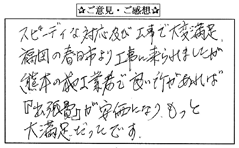 ☆ご意見・ご感想☆
スピーディな対応及び工事で大変満足。
福岡の春日市より工事に来られましたが
熊本の協力業者で良い所があれば
『出張費』が安価になり、もっと
大満足だったです。